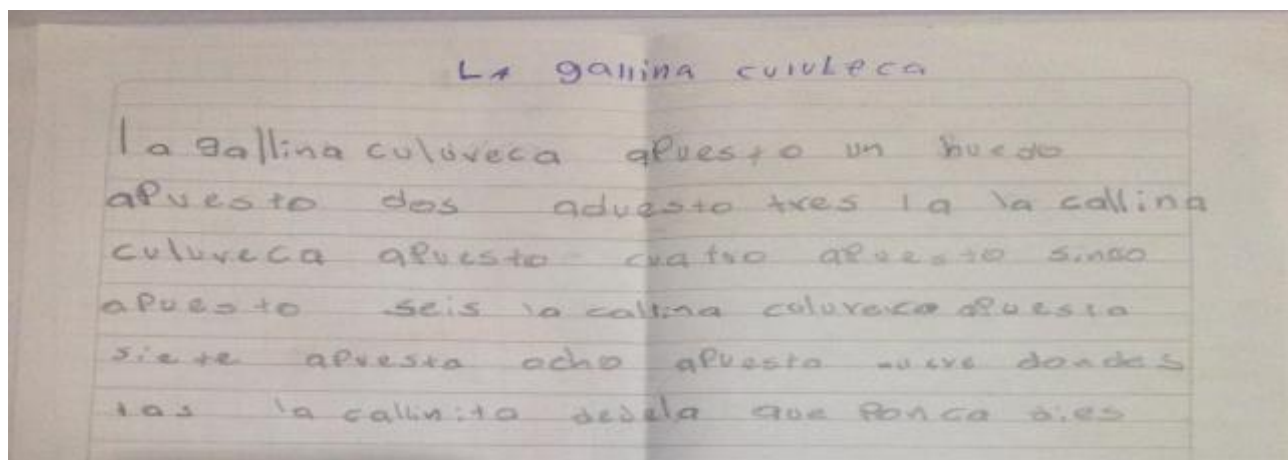 La gallina cululeca
la gallina culuveca apuesto un huedo
apuesto dos aduesto tres la la callina
culuveca apuesto cuatro apuesto sinco
apuesto seis la callina coluveca apuesta
siete apuesta ocho apuesta nueve dondes
tas la callinita dedela que ponca dies